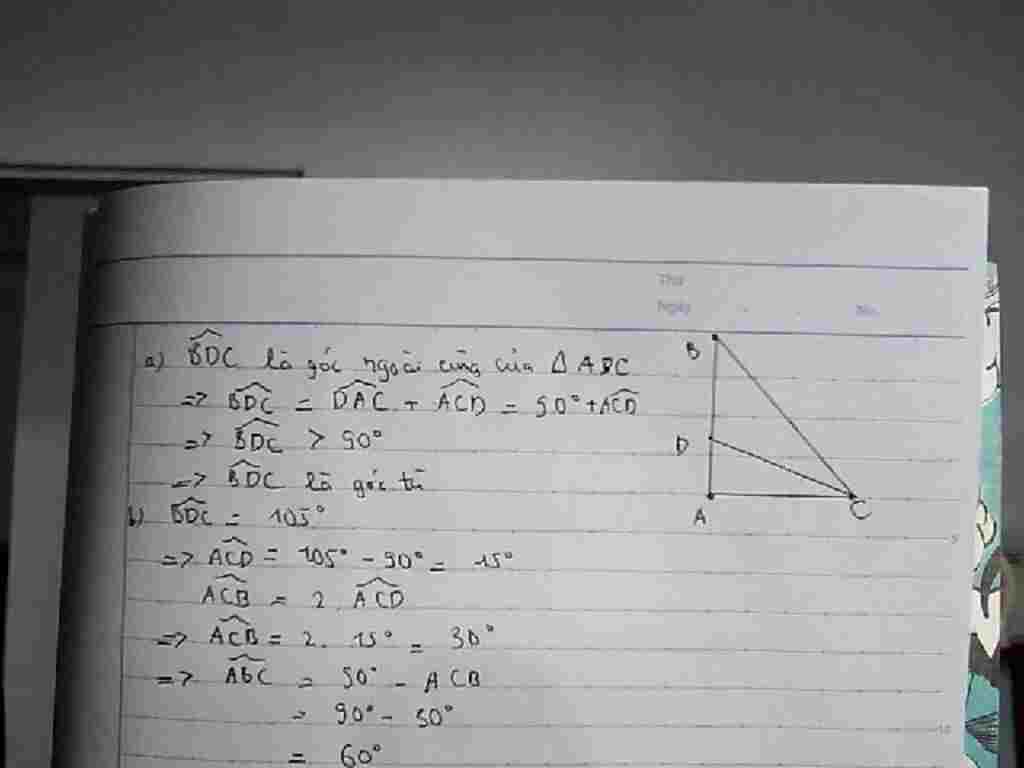 Thứ
Ngày
No.
a) BDC là góc ngoài cũng của Δ ABC
=> BDC = DAC + ACD = 90° + ACD
=> BDC > 90°
=> BDC là góc tù
b) BDC = 105°
=> ACD = 105° - 90° = 15°
ACB = 2. ACD
=> ACB = 2. 15° = 30°
=> ABC = 90° - ACB
= 90° - 30°
= 60°
B
D
A
C
5
10